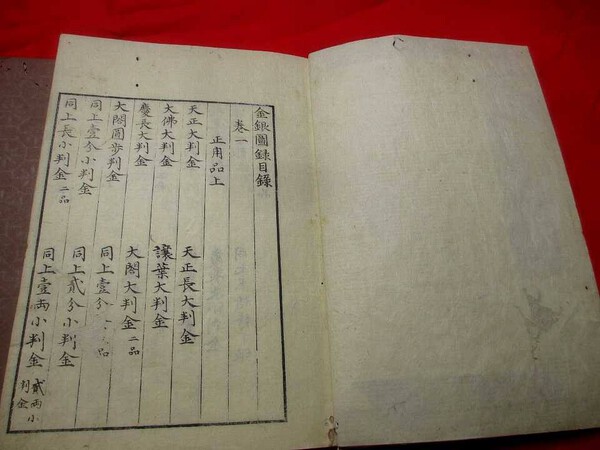 金銀圖録目録
巻一
正用品上
天正大判金
天正長大判金
大佛大判金
譲葉大判金
慶長大判金
大閤大判金 二品
大閤圓歩判金
同上壹分
品
同上壹分小判金
同上貳分小判金
同上長小判金 二品
同上壹両小判金 貳両小判金